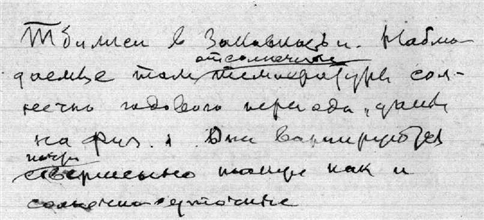 Тбилиси в Закавказьи. Наблю-
даемые там
отсолнечные
температуры сол-
нечно годового периода, даны
на фиг. 1. Они варьируются
почти
совершенно также как и
солнечно суточные